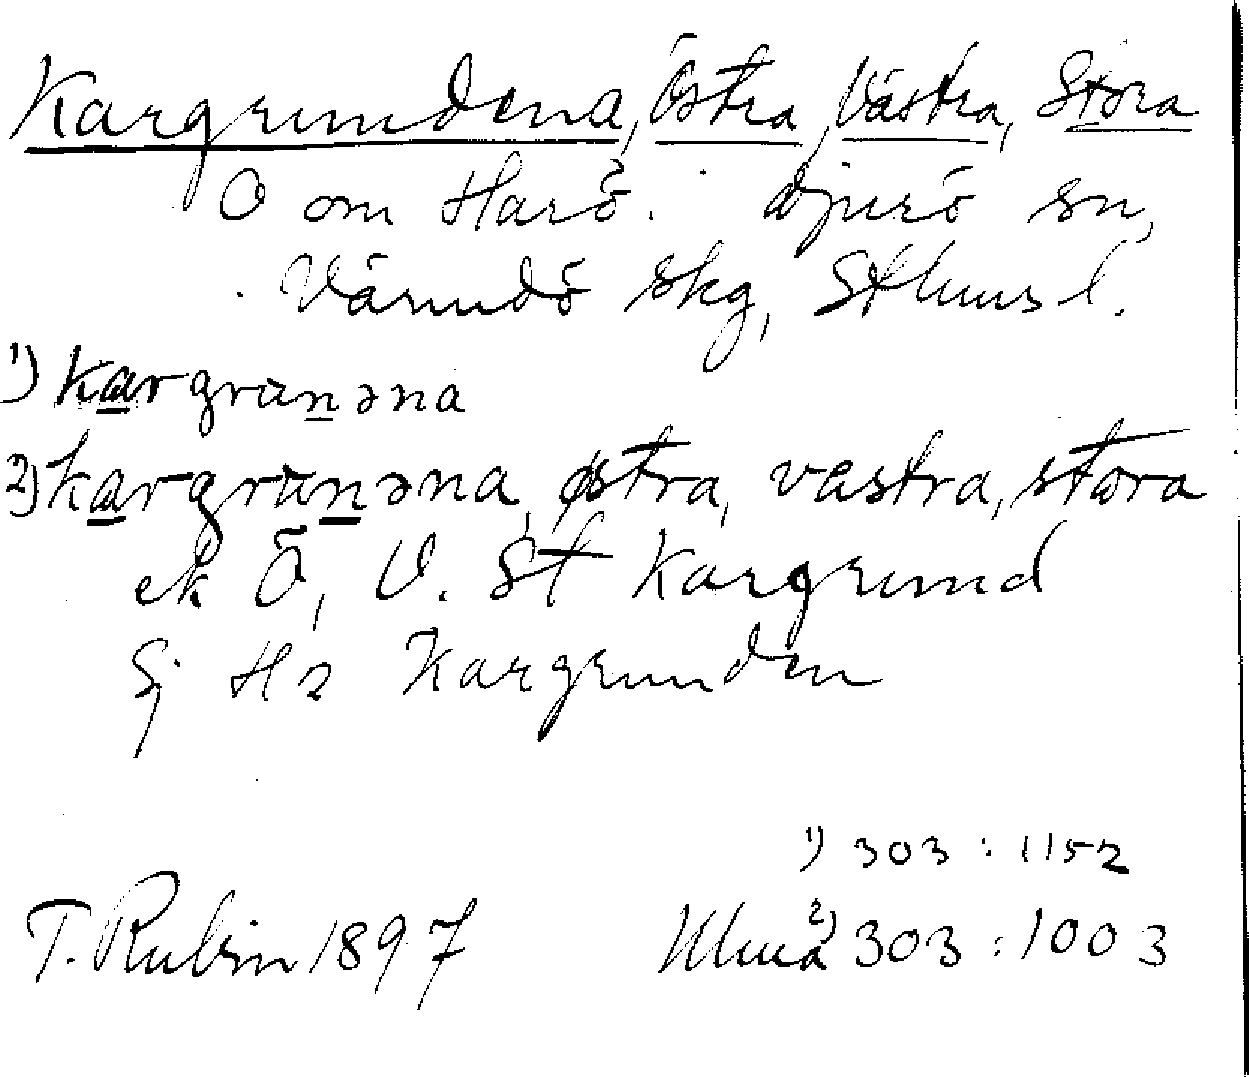 Kargrundena, Östra, Västra, Stora
O om Harö. Djurö sn,
Värmdö skg, Sthms l.
1) kargrunəna
2) kargrunəna, østra, vastra, stora
ek Ö, V. St Kargrund
Sj Hz Kargrunden
1) 303 : 1152
T. Rubin 1897 2) 303 : 1003